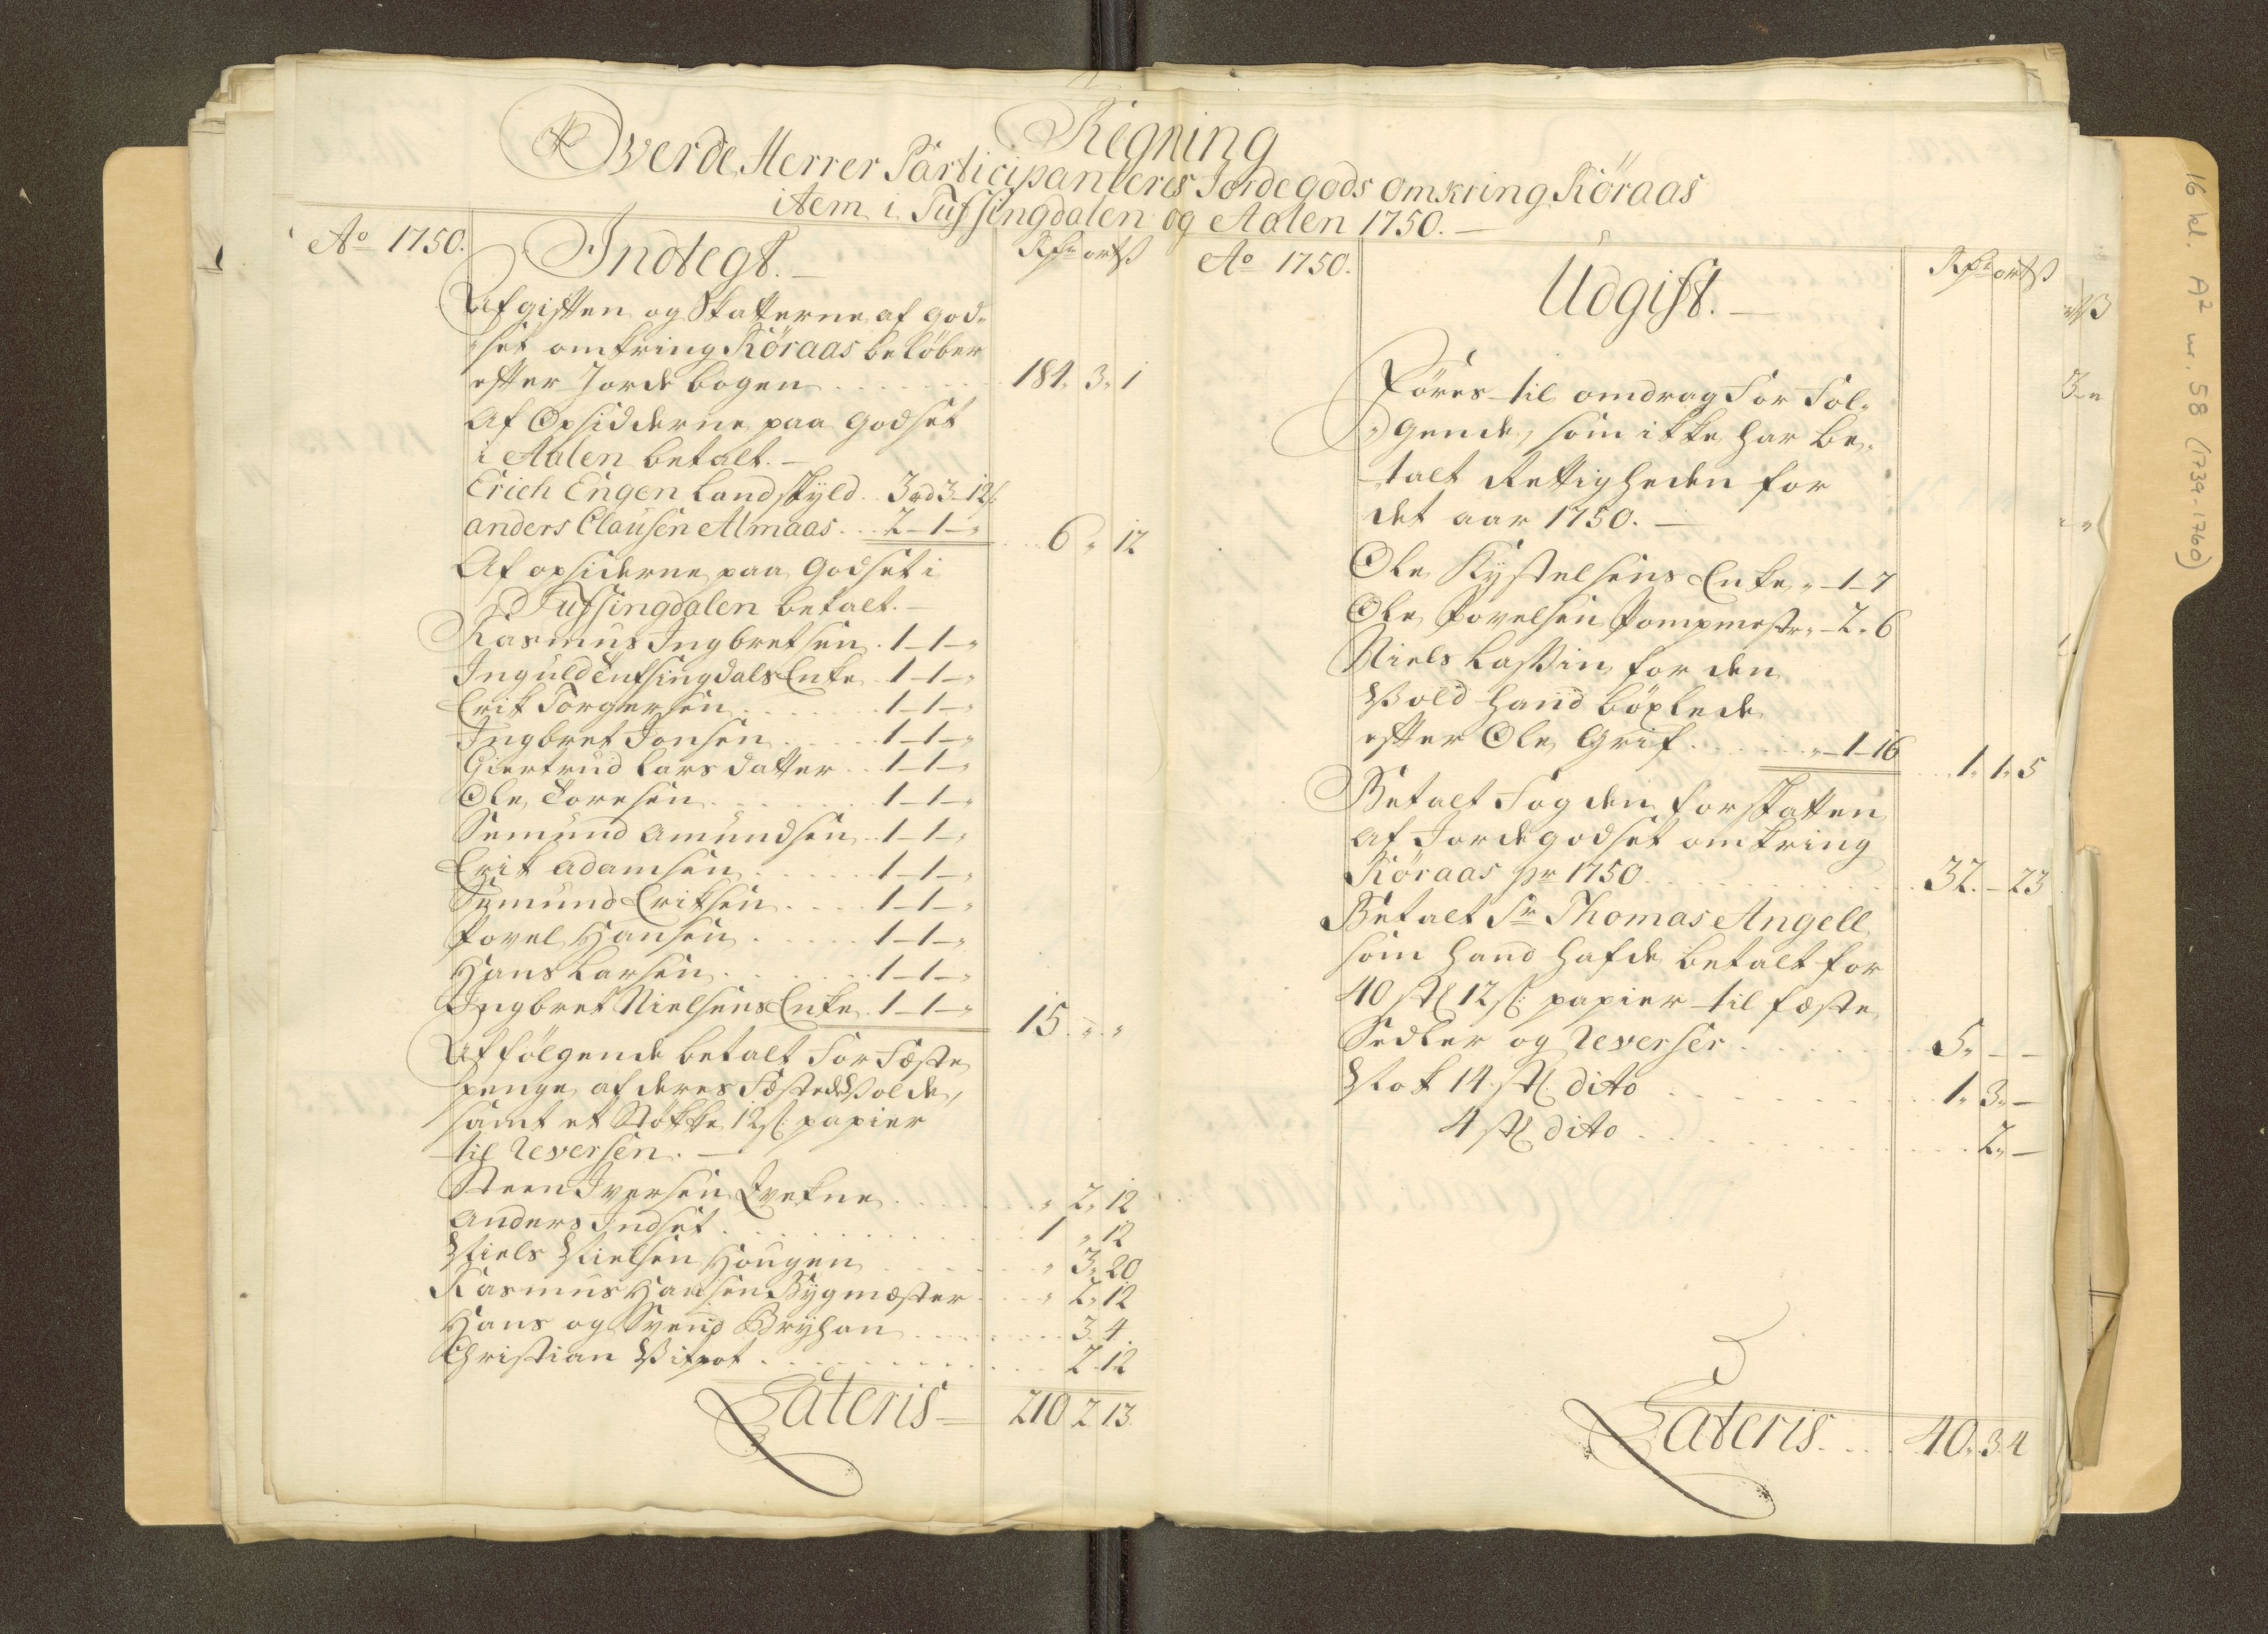 Regning
Over de Herrer Participanteres Jordegods omkring Röraas
item i Tufsingdalen og Aalen 1750. —
Ao 1750.
Indtegt. —
Rdr ort ß
Afgiften og Skatterne af God-
set omkring Röraas beløber
efter Jordebogen . . . 184. 3. 1
Af Opsidderne paa Godset
i Aalen betalt. —
Erich Engen Landskyld . . 3 rd 3 - 12 s
Anders Clausen Almaas . . 2 - 1 - „ . . . 6 „ 12
Af opsiderne paa Godset i
Tufsingdalen betalt. —
Rasmus Ingbretsen . 1 - 1 - „
Inguld Tufsingdals Enke . 1 - 1 - „
Erik Torgersen . . . 1 - 1 - „
Ingbret Jonsen . . . 1 - 1 - „
Giertrud Larsdatter . . 1 - 1 - „
Ole Toresen . . . 1 - 1 - „
Semund Amundsen . . 1 - 1 - „
Erik Adamsen . . . 1 - 1 - „
Semund Eriksen . . . 1 - 1 - „
Povel Hansen . . . 1 - 1 - „
Hans Larsen . . . 1 - 1 - „
Ingbret Nielsens Enke . 1 - 1 - „ 15 . „ . „
Af følgende betalt for Fæste
penge af deres Fæstede Volde,
samt et Støkke 12 s: papier
til Reversen. —
Steen Iversen . . . „ 2 „ 12
Anders Indset . . . 1 „ 12
Niels Nielsen Hougen . . . „ 3 „ 20
Rasmus Hansen Bygmæster . . . „ 2 „ 12
Hans og Svend Bryhan . . . 3. 4
Christian . . . 2. 12
Lateris — 210 2 13.
Ao 1750.
Udgift. —
Rdr ort ß
Föres til omdrag for Føl-
gende, som ikke har be-
talt Rettigheden for
det aar 1750. —
Ole Kystelsens Enke „ - 1 - 7
Ole Povelsen Pompmestr „ - 2 „ 6
Niels Lassin for den
Vold hand böxlede
efter Ole Grif . . . „ - 1 - 16 . . . 1. 1. 5
Betalt Fogden for skatten
af Jordegodset omkring
Röraas pr 1750 . . . 32. — 23
Betalt Sr Thomas Angell
som hand hafde betalt for
40 st 12 s: papier til fæste
Sedler og Reverser . . . 5. — —
Nok 14 st dito . . . 1. 3. —
4 st dito . . . 2. —
Lateris . . . 40. 3. 4
16 kl. A² nr. 58 (1739-1760)